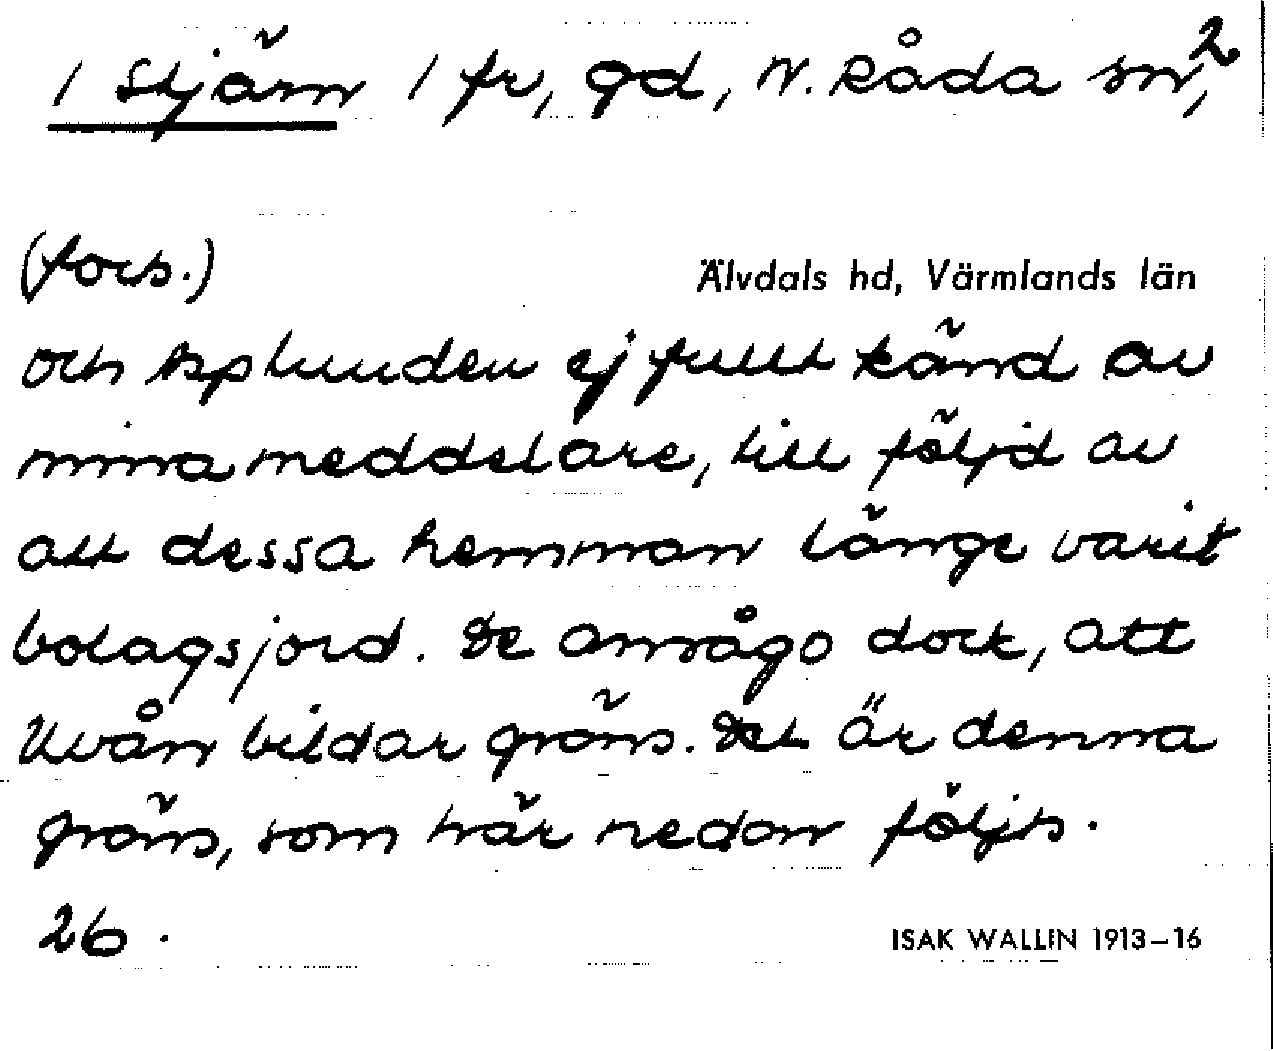 1 Stjärn 1 fr, gd, N. Råda sn, 2
(forts.)
Älvdals hd, Värmlands län
och Asplunden ej fullt känd av
mina meddelare, till följd av
att dessa hemman länge varit
bolagsjord. De anságo dock, att
Uvån bildar gräns. Det är denna
gräns, som här nedan följts.
26.
ISAK WALLIN 1913–16